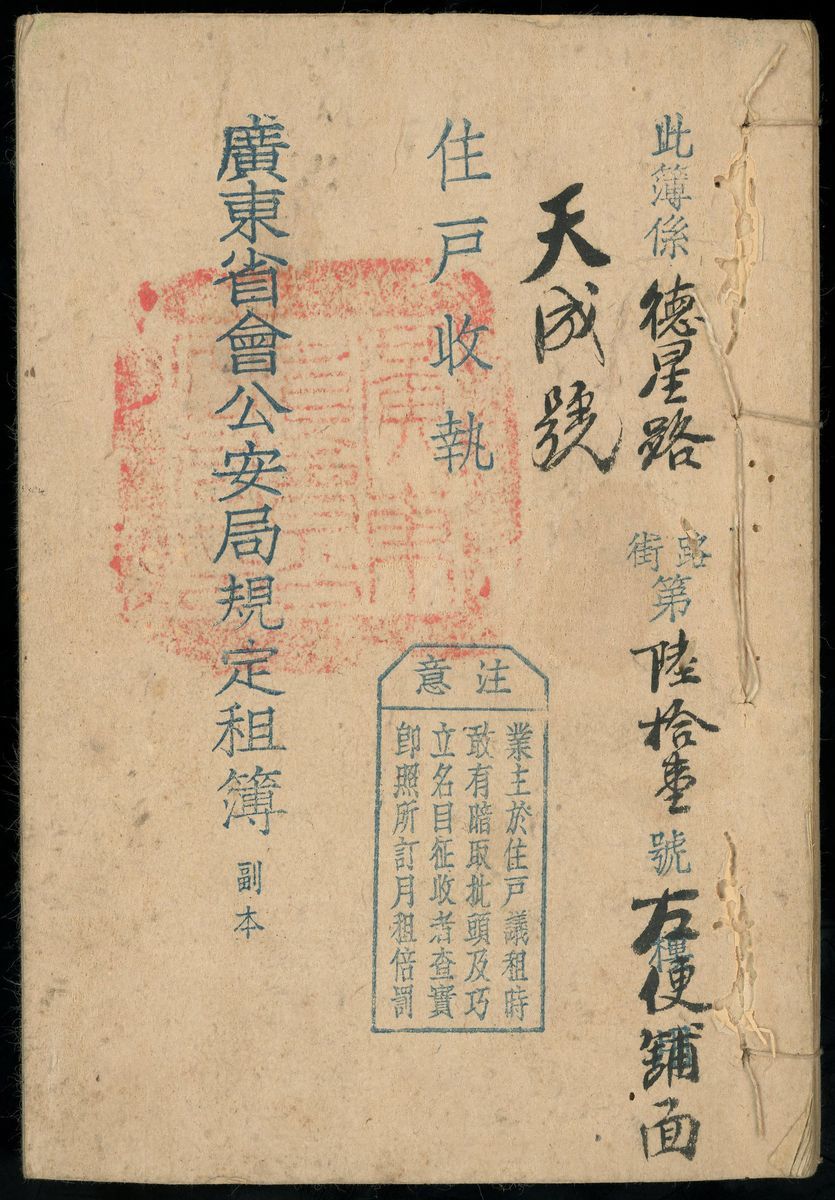 此簿係德星路街路第陸拾壹號右便舖面
天成號
住戶收執
注意
業主於住戶議租時
敢有暗取批頭及巧
立名目征收者查實
卽照所訂月租倍罰
廣東省會公安局規定租簿 副本